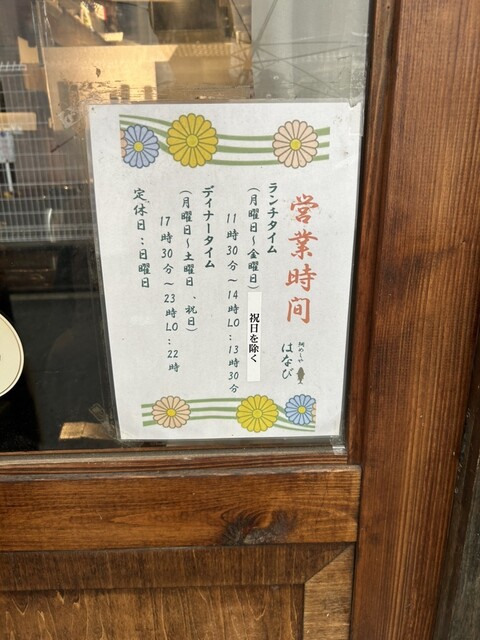 営業時间
炯めしや
はなび
ランチタイム
(月曜日～金曜日)祝日を除く
11時30分～14時LO:13時30分
ディナータイム
(月曜日～土曜日、祝日)
17時30分～23時LO:22時
定休日:日曜日